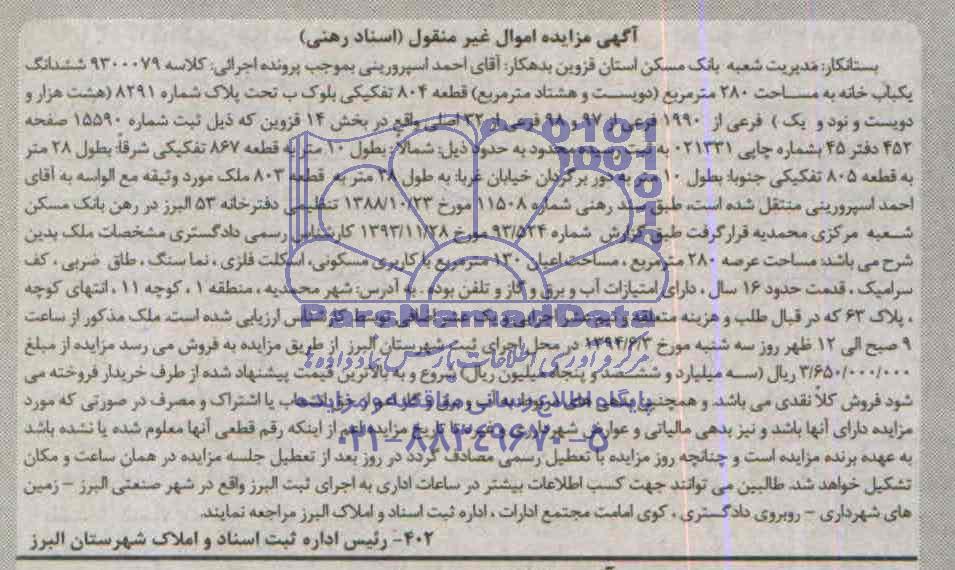 آگهی مزایده اموال غیر منقول (اسناد رهنی)
بستانکار: مدیریت شعبه بانک مسکن استان قزوین بدهکار: آقای احمد اسپرورینی بموجب پرونده اجرائی: کلاسه ۹۳۰۰۰۷۹ ششدانگ
یکباب خانه به مساحت ۲۸۰ مترمربع (دویست و هشتاد مترمربع) قطعه ۸۰۴ تفکیکی بلوک ب تحت پلاک شماره ۸۲۹۱ (هشت هزار و
دویست و نود و یک ) فرعی از ۱۹۹۰ فرعی از ۹۷ و ۹۸ فرعی از ۳۲ اصلی واقع در بخش ۱۴ قزوین که ذیل ثبت شماره ۱۵۵۹۰ صفحه
۴۵۲ دفتر ۴۵ بشماره چاپی ۰۲۱۳۳۱ به ثبت رسیده محدود به حدود ذیل: شمالا: بطول ۱۰ متر به قطعه ۸۶۷ تفکیکی شرقاً: بطول ۲۸ متر
به قطعه ۸۰۵ تفکیکی جنوبا: بطول ۱۰ متر به دور برگردان خیابان غربا: به طول ۲۸ متر به قطعه ۸۰۳ ملک مورد وثیقه مع الواسه به آقای
احمد اسپرورینی منتقل شده است، طبق سند رهنی شماره ۱۱۵۰۸ مورخ ۱۳۸۸/۱۰/۲۳ تنظیمی دفترخانه ۵۳ البرز در رهن بانک مسکن
شعبه مرکزی محمدیه قرار گرفت طبق گزارش شماره ۹۳/۵۳۴ مورخ ۱۳۹۳/۱۱/۲۸ کارشناس رسمی دادگستری مشخصات ملک بدین
شرح می باشد: مساحت عرصه ۲۸۰ مترمربع ، مساحت اعیان ۱۳۰ مترمربع با کاربری مسکونی، اسکلت فلزی ، نما سنگ ، طاق ضربی ، کف
سرامیک ، قدمت حدود ۱۶ سال ، دارای امتیازات آب و برق و گاز و تلفن بوده . به آدرس: شهر محمدیه ، منطقه ۱ ، کوچه ۱۱ ، انتهای کوچه
، پلاک ۶۳ که در قبال طلب و هزینه متعلقه و نیم عشر اجرایی و یک عشر اضافی توسط کارشناس ارزیابی شده است، ملک مذکور از ساعت
۹ صبح الی ۱۲ ظهر روز سه شنبه مورخ ۱۳۹۴/۶/۳ در محل اجرای ثبت شهرستان البرز از طریق مزایده به فروش می رسد مزایده از مبلغ
۳/۶۵۰/۰۰۰/۰۰۰ ریال (سه میلیارد و ششصد و پنجاه میلیون ریال) شروع و به بالاترین قیمت پیشنهاد شده از طرف خریدار فروخته می
شود فروش کلاً نقدی می باشد. و همچنین بدهی های مربوط به آب و برق و گاز اعم از حق انشعاب یا اشتراک و مصرف در صورتی که مورد
مزایده دارای آنها باشد و نیز بدهی مالیاتی و عوارض شهرداری و غیره تا تاریخ مزایده اعم از اینکه رقم قطعی آنها معلوم شده یا نشده باشد
به عهده برنده مزایده است و چنانچه روز مزایده با تعطیل رسمی مصادف گردد در روز بعد از تعطیل جلسه مزایده در همان ساعت و مکان
تشکیل خواهد شد. طالبین می توانند جهت کسب اطلاعات بیشتر در ساعات اداری به اجرای ثبت البرز واقع در شهر صنعتی البرز - زمین
های شهرداری - روبروی دادگستری ، کوی امامت مجتمع ادارات ، اداره ثبت اسناد و املاک البرز مراجعه نمایند.
۴۰۲- رئیس اداره ثبت اسناد و املاک شهرستان البرز
ParsNamadData
مرکز فرآوری اطلاعات پارس نماد داده ها
پایگاه اطلاع رسانی مناقصه و مزایده
۰۲۱-۸۸۳۴۹۶۷۰-۵